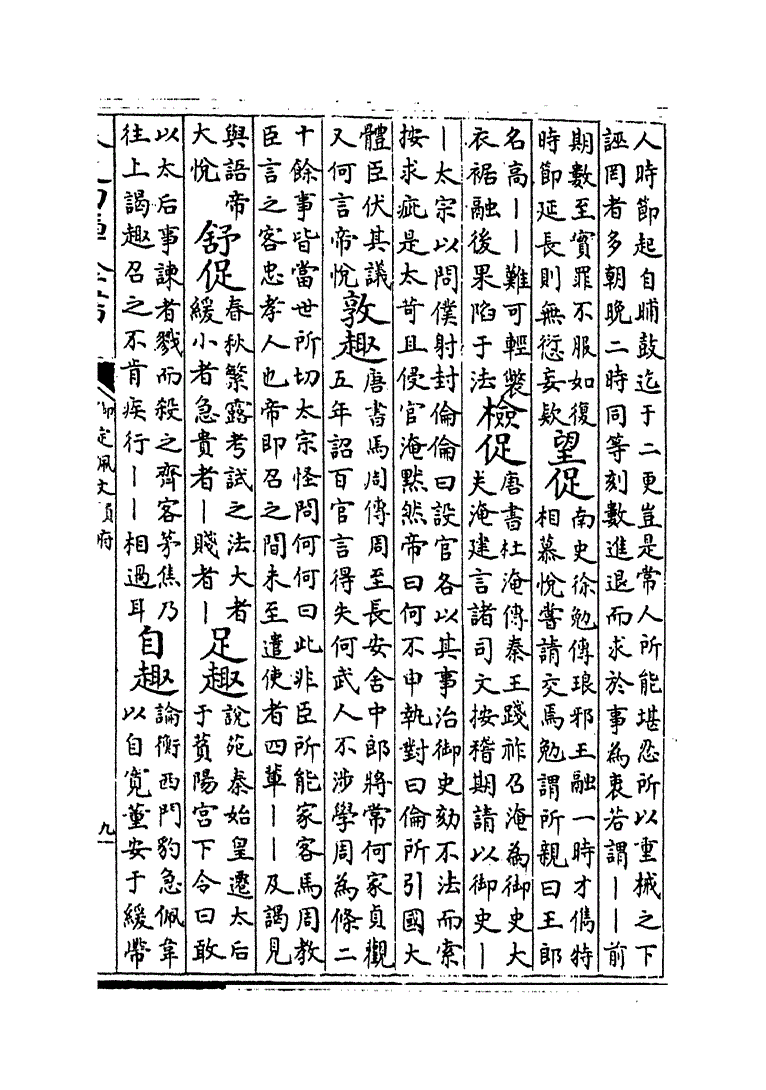 人時節起自晡鼓迄于二更豈是常人所能堪忍所以重械之下
誣罔者多朝晚二時同等刻數進退而求於事為衷若謂丨丨前
期數至實罪不服如復
時節延長則無愆妄欵
望促
南史徐勉傳琅邪王融一時才儁特
相慕悅嘗請交焉勉謂所親曰王郎
名高丨丨難可輕𧝬
衣裾融後果陷于法
檢促
唐書杜淹傳秦王踐祚召淹為御史大
夫淹建言諸司文按稽期請以御史丨
丨太宗以問僕射封倫倫曰設官各以其事治御史劾不法而索
按求疵是太苛且侵官淹黙然帝曰何不申執對曰倫所引國大
體臣伏其議
又何言帝悅
敦趣
唐書馬周傳周至長安舍中郎將常何家貞觀
五年詔百官言得失何武人不涉學周為條二
十餘事皆當世所切太宗怪問何何曰此非臣所能家客馬周教
臣言之客忠孝人也帝即召之間未至遣使者四輩丨丨及謁見
與語帝
大悅
舒促
春秋繁露考試之法大者
緩小者急貴者丨賤者丨
足趣
說苑秦始皇遷太后
于萯陽宫下令曰敢
以太后事諫者戮而殺之齊客茅焦乃
往上謁趣召之不肯疾行丨丨相過耳
自趣
論衡西門豹急佩韋
以自寛董安于緩帶
御定佩文韻府
九